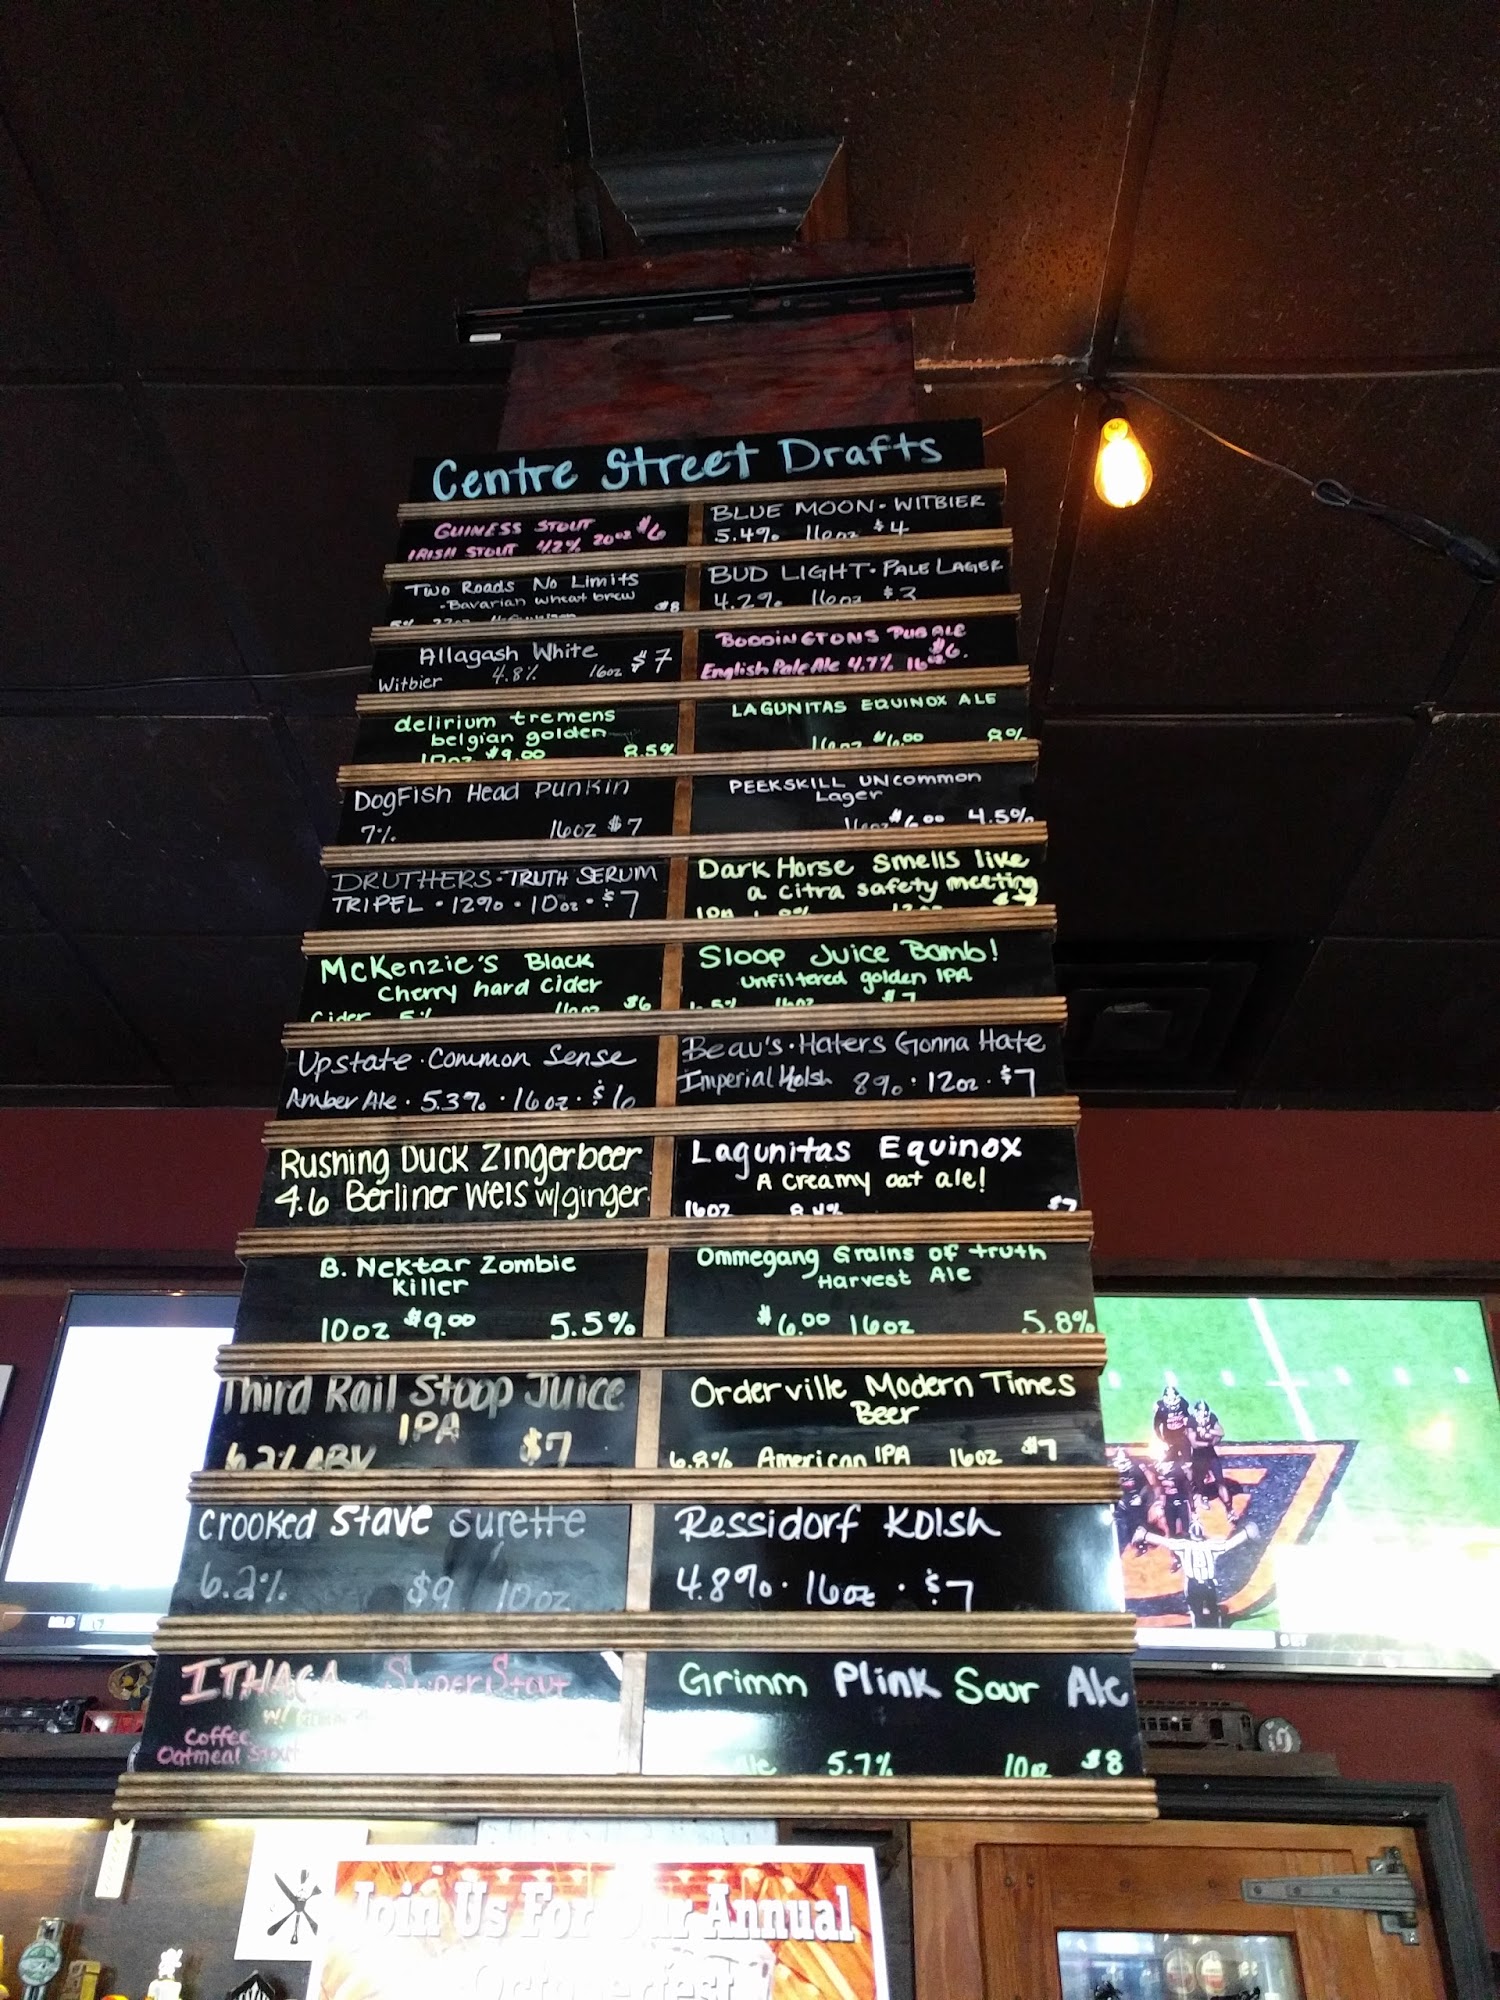 Centre Street Drafts
GUINESS STOUT
IRISH STOUT 4.2% 20oz $6
BLUE MOON - WITBIER
5.4% 16oz $4
Two Roads No Limits
-Bavarian wheat brew
5% $8
BUD LIGHT - PALE LAGER
4.2% 16oz $3
Allagash White
Witbier 4.8% 16oz $7
BODDINGTONS PUB ALE
English Pale Ale 4.7% 16oz $6.
delirium tremens
belgian golden
10oz $9.00 8.5%
LAGUNITAS EQUINOX ALE
16oz $6.00 8%
DogFish Head Punkin
7% 16oz $7
PEEKSKILL UNcommon
Lager
16oz $6.00 4.5%
DRUTHERS - TRUTH SERUM
TRIPEL - 12% - 10oz - $7
Dark Horse Smells like
a citra safety meeting
McKenzie's Black
Cherry hard cider
Cider 5% 16oz $6
Sloop Juice Bomb!
unfiltered golden IPA
6.5% 16oz $7
Upstate - Common Sense
Amber Ale - 5.3% - 16oz - $6
Beau's - Haters Gonna Hate
Imperial Kolsh 8% - 12oz - $7
Rushing Duck Zingerbeer
4.6 Berliner Weis w/ginger
Lagunitas Equinox
A creamy oat ale!
16oz 8.4% $7
B. Nektar Zombie
Killer
10oz $9.00 5.5%
Ommegang Grains of truth
Harvest Ale
$6.00 16oz 5.8%
Third Rail Stoop Juice
IPA
6.2% ABV $7
Orderville Modern Times
Beer
6.8% American IPA 16oz $7
Crooked Stave Surette
6.2% $9 10oz
Ressidorf Kolsh
4.8% - 16oz - $7
ITHACA SuperStout
w/
Coffee
Oatmeal Stout
Grimm Plink Sour Ale
5.7% 10oz $8
Join Us For Our Annual
Octoberfest